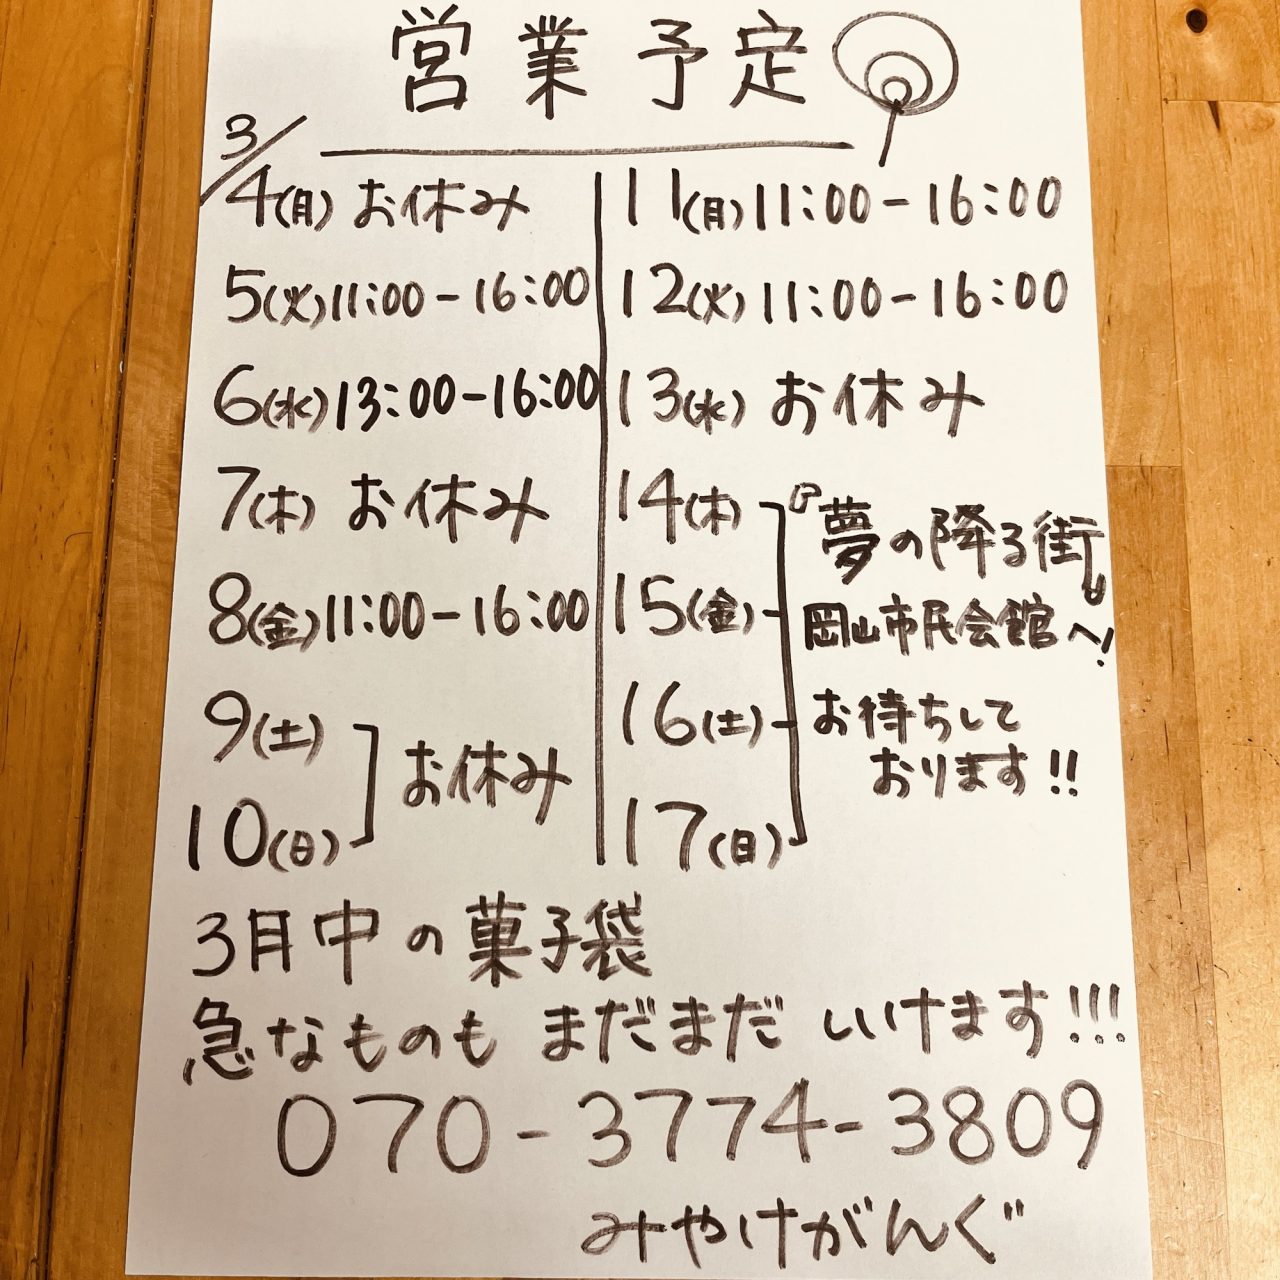 営業予定
3/4(月) お休み
5(火)11:00-16:00
6(水)13:00-16:00
7(木) お休み
8(金)11:00-16:00
9(土)
10(日)
お休み
11(月)11:00-16:00
12(火)11:00-16:00
13(水) お休み
14(木)
15(金)
16(土)
17(日)
『夢の降る街』
岡山市民会館へ!
お待ちして
おります!!
3月中の菓子袋
急なものも まだまだ いけます!!!
070-3774-3809
みやけがんぐ